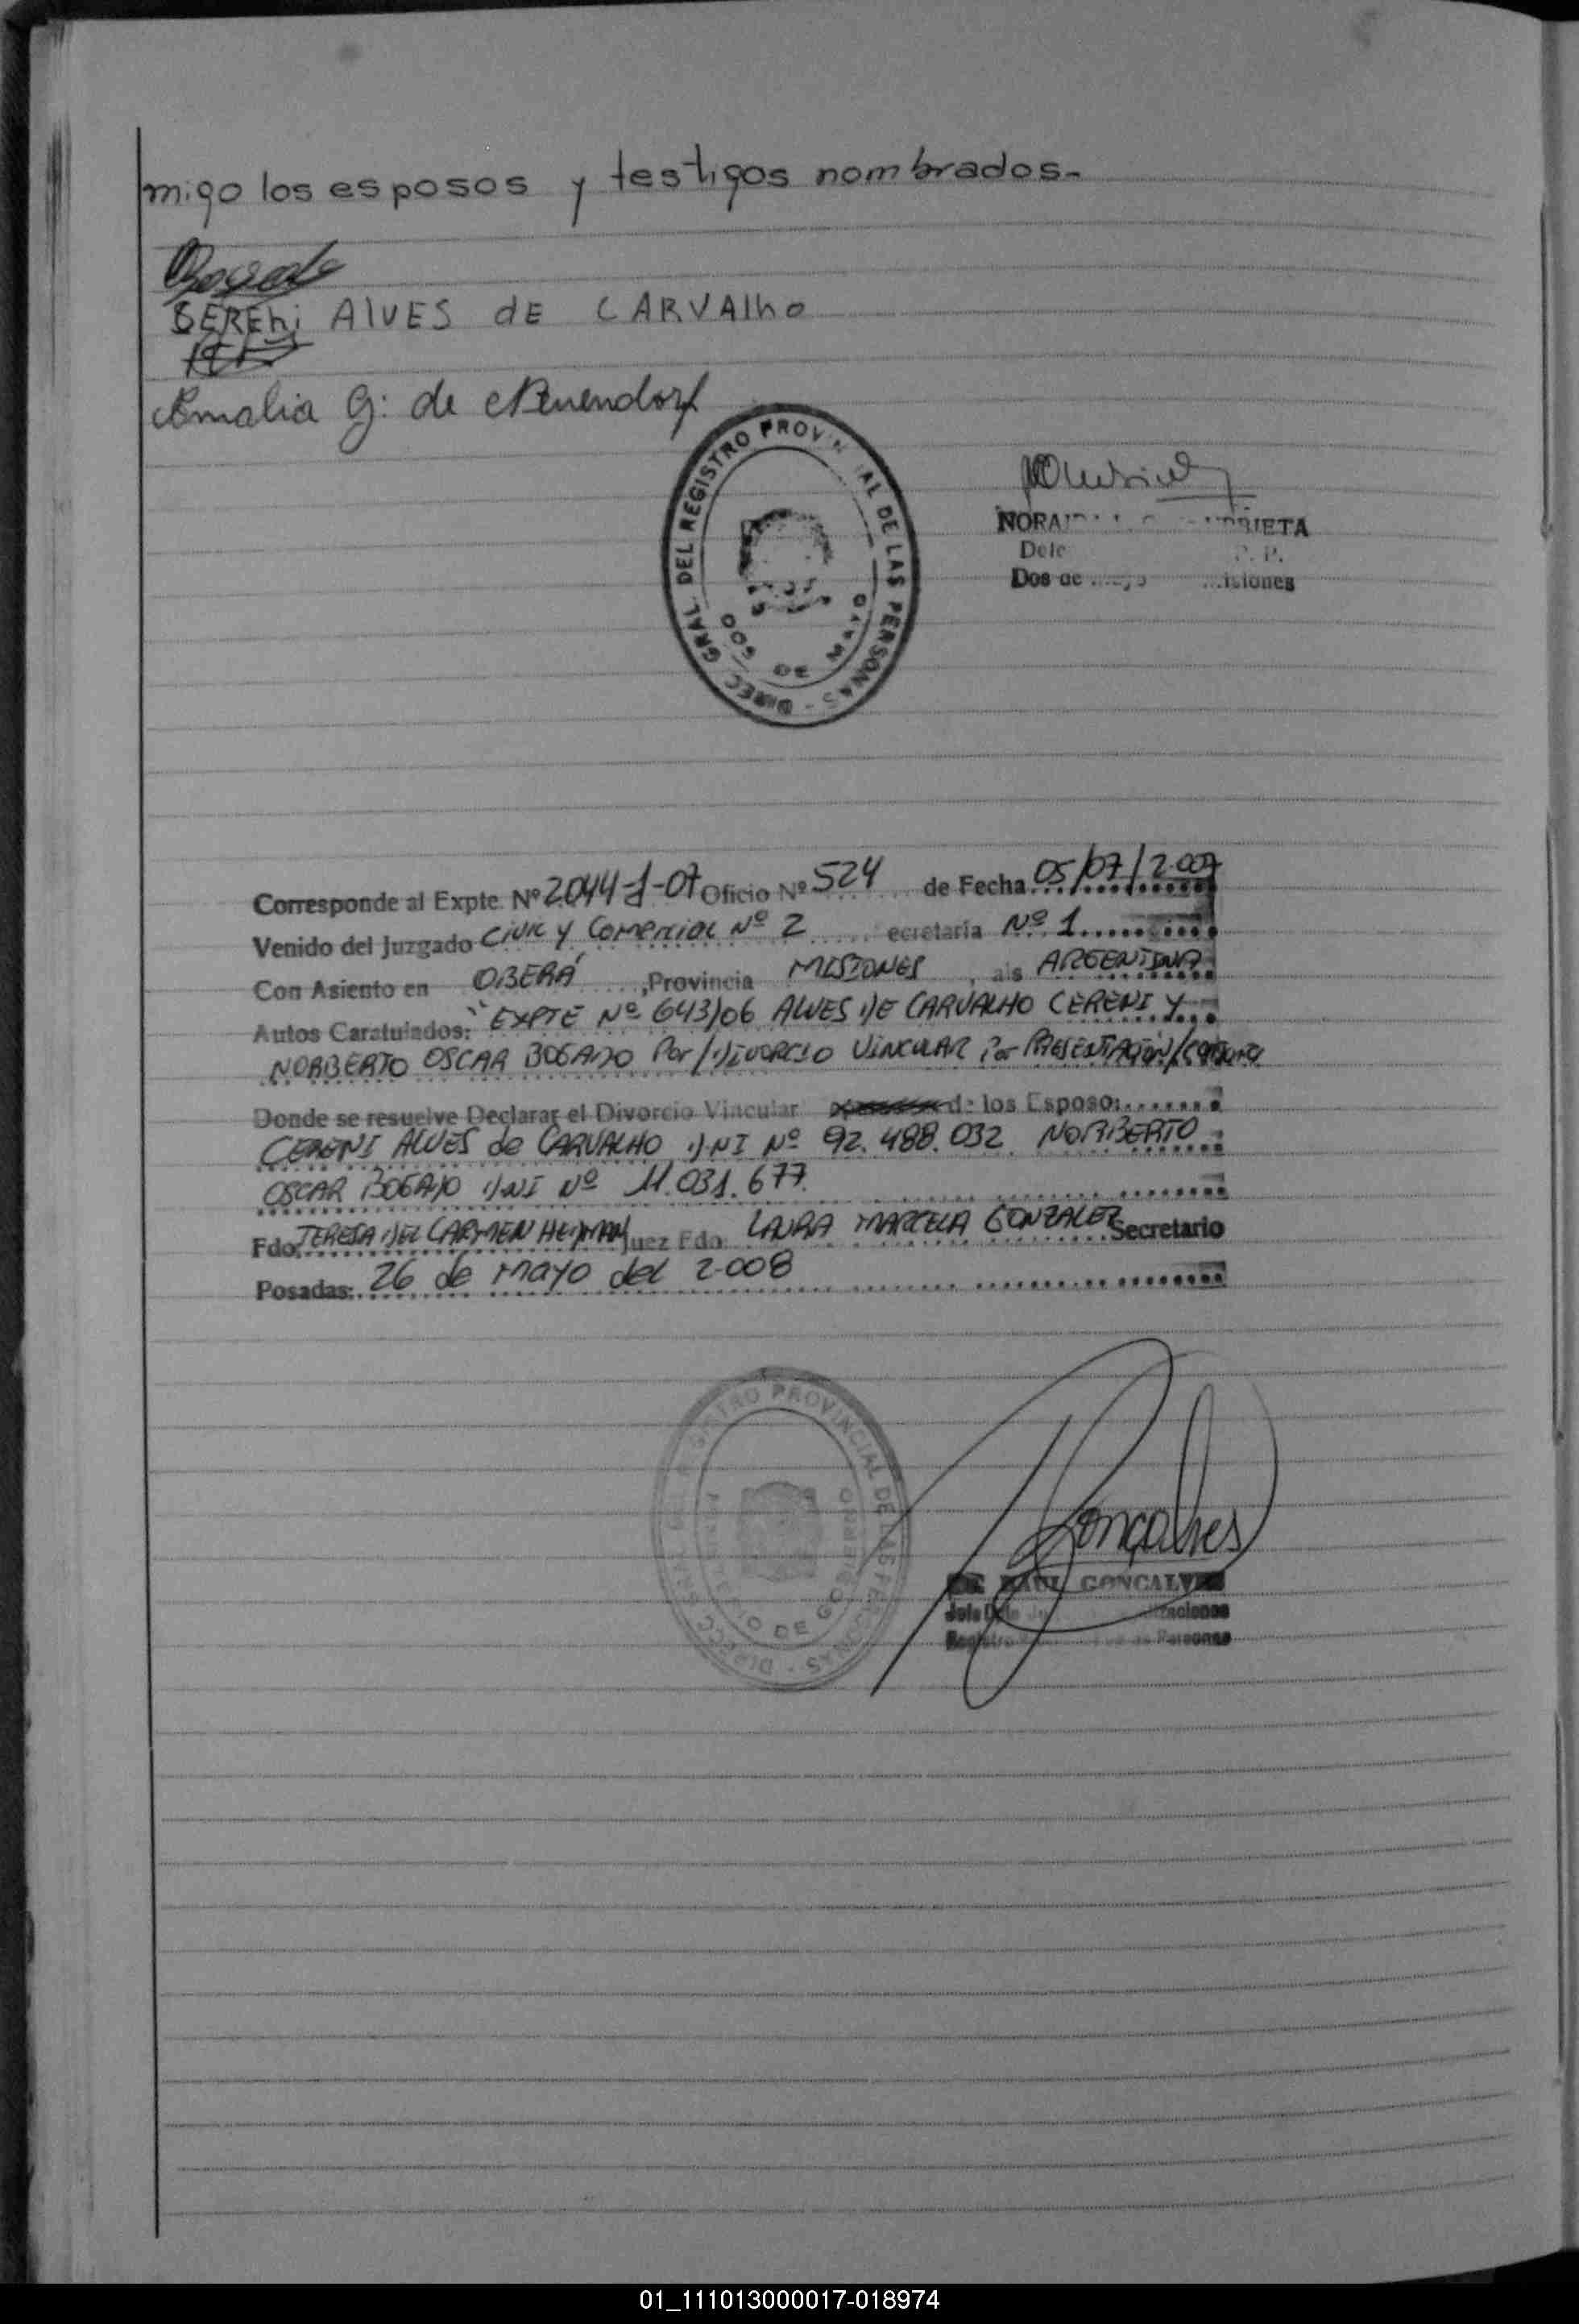 migo los esposos y testigos nombrados.-
SEREhi AlVES dE CARVAlho
Amalia G: de Neuendorf
DIREC GRAL. DEL REGISTRO PROVINCIAL DE LAS PERSONAS -
DOS DE MAYO
NORA
RRIETA
Dele
P. P.
Dos de Mayo
Misiones
Corresponde al Expte Nº 2044-J-07 Oficio Nº 524 de Fecha 05/07/2.007
Venido del Juzgado Civil y Comercial Nº 2 ecretaria Nº 1
Con Asiento en OBERÁ ,Provincia MISIONES , ais ARGENTINA
Autos Caratulados: "EXPTE Nº 643/06 ALVES DE CARVALHO CERENI Y
NORBERTO OSCAR BOGADO Por / DIVORCIO VINCULAR Por PRESENTACION/CONJUNTA
Donde se resuelve Declarar el Divorcio Vincular de los Esposo:
CERENI ALVES de CARVALHO DNI Nº 92.488.032 NORBERTO
OSCAR BOGADO DNI Nº 11.031.677.
Fdo. TERESA DEL CARMEN HEDMAN Juez Fdo: LAURA MARCELA GONZALEZ Secretario
Posadas: 26 de mayo del 2.008
DIRECC GRAL DEL REGISTRO PROVINCIAL DE LAS PERSONAS -
MINISTERIO DE GOBIERNO
Gonçalves
RAUL GONCALVES
Jefe
Registro Personas
01_111013000017-018974